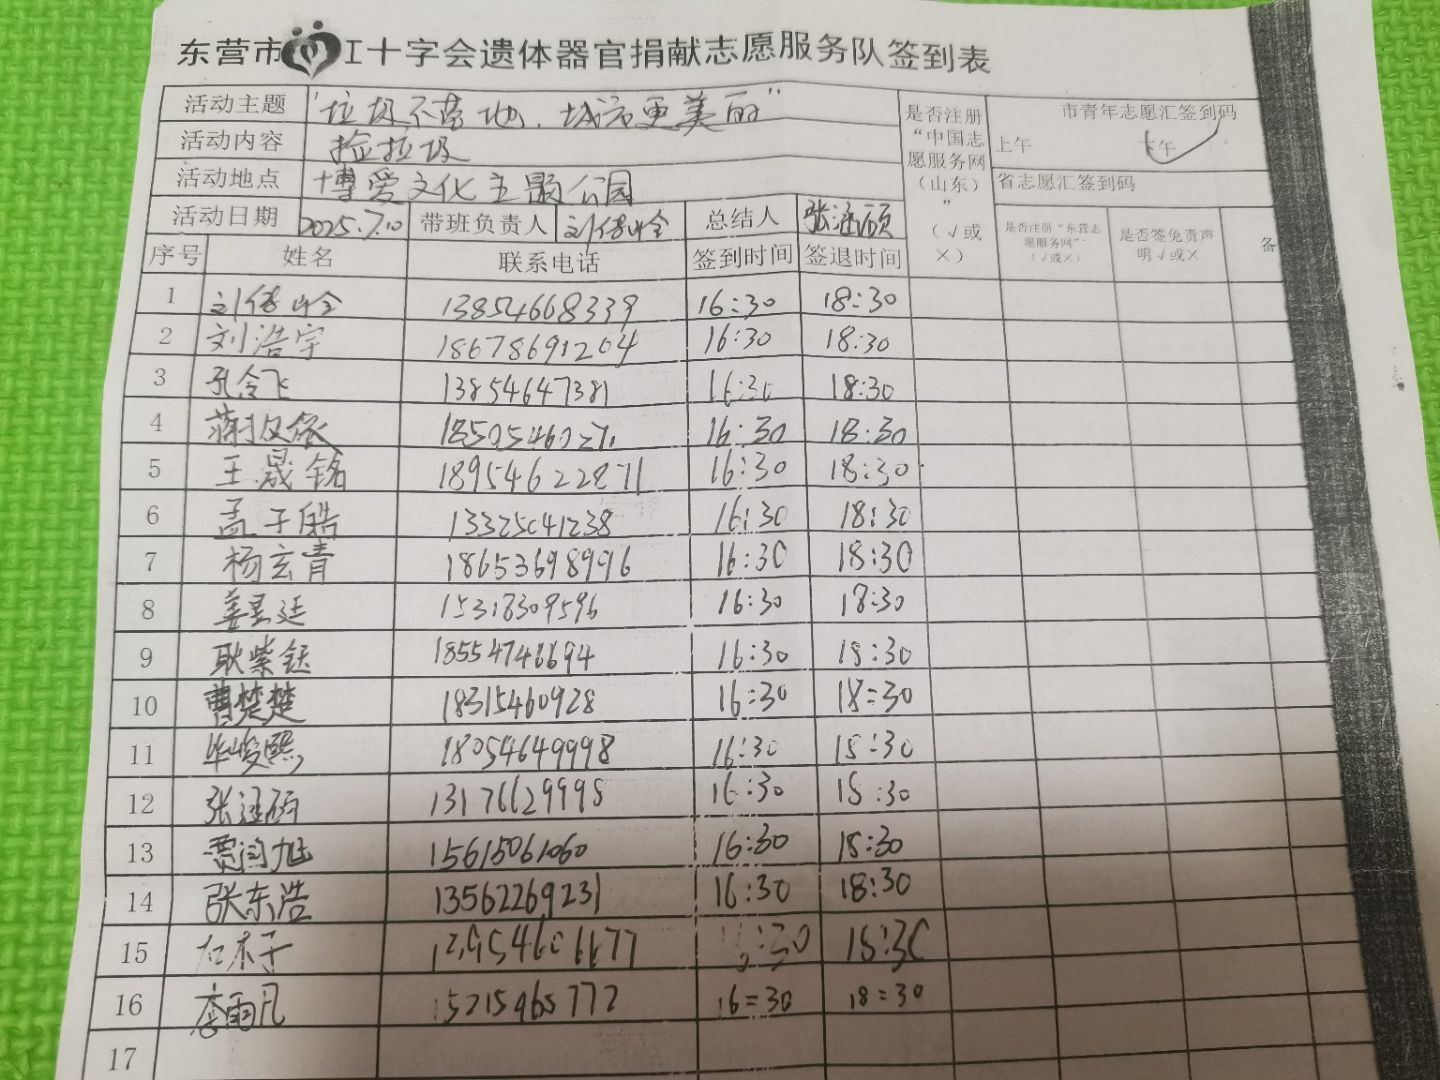 东营市红十字会遗体器官捐献志愿服务队签到表
活动主题 "垃圾不落地,城市更美丽"
活动内容 捡垃圾
活动地点 博爱文化主题公园
活动日期 2025.7.10 带班负责人 总结人
是否注册“中国志愿服务网（山东）”（√或×）
市青年志愿汇签到码
上午 下午
省志愿汇签到码
是否注册“东营志愿服务网”（√或×） 是否签免责声明√或× 备
序号 姓名 联系电话 签到时间 签退时间
1 13854668339 16:30 18:30
2 刘浩宇 18678691204 16:30 18:30
3 孔令飞 13854647381 16:30 18:30
4 16:30 18:30
5 王晟铭 18954622871 16:30 18:30
6 孟子皓 13325041238 16:30 18:30
7 杨玄青 18653698996 16:30 18:30
8 姜昱廷 15318309596 16:30 18:30
9 耿紫钰 18554748694 16:30 18:30
10 曹楚楚 18315460928 16:30 18:30
11 毕峻熙 18054649998 16:30 18:30
12 13176629995 16:30 18:30
13 贾闰旭 15615061060 16:30 18:30
14 张东浩 13562269231 16:30 18:30
15 18:30
16 李雨凡 15215465772 16=30 18=30
17